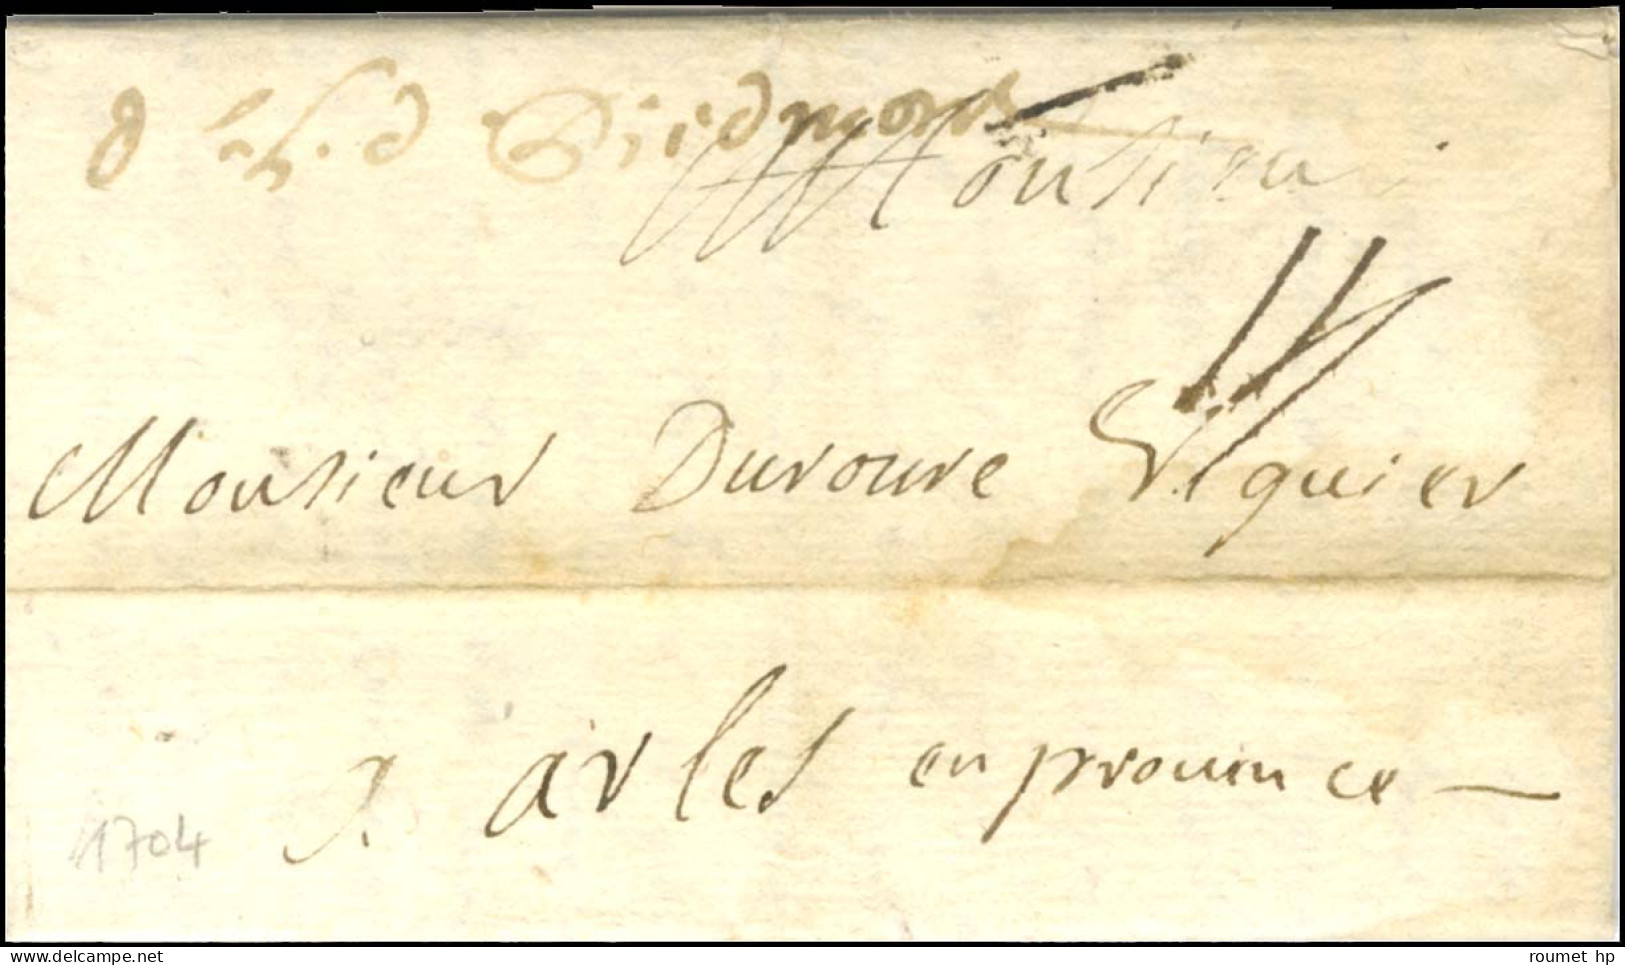 Piedmont
Monsieur
Monsieur Duroure Viguier
a arles en prouence
1704
delcampe.net
roumet hp